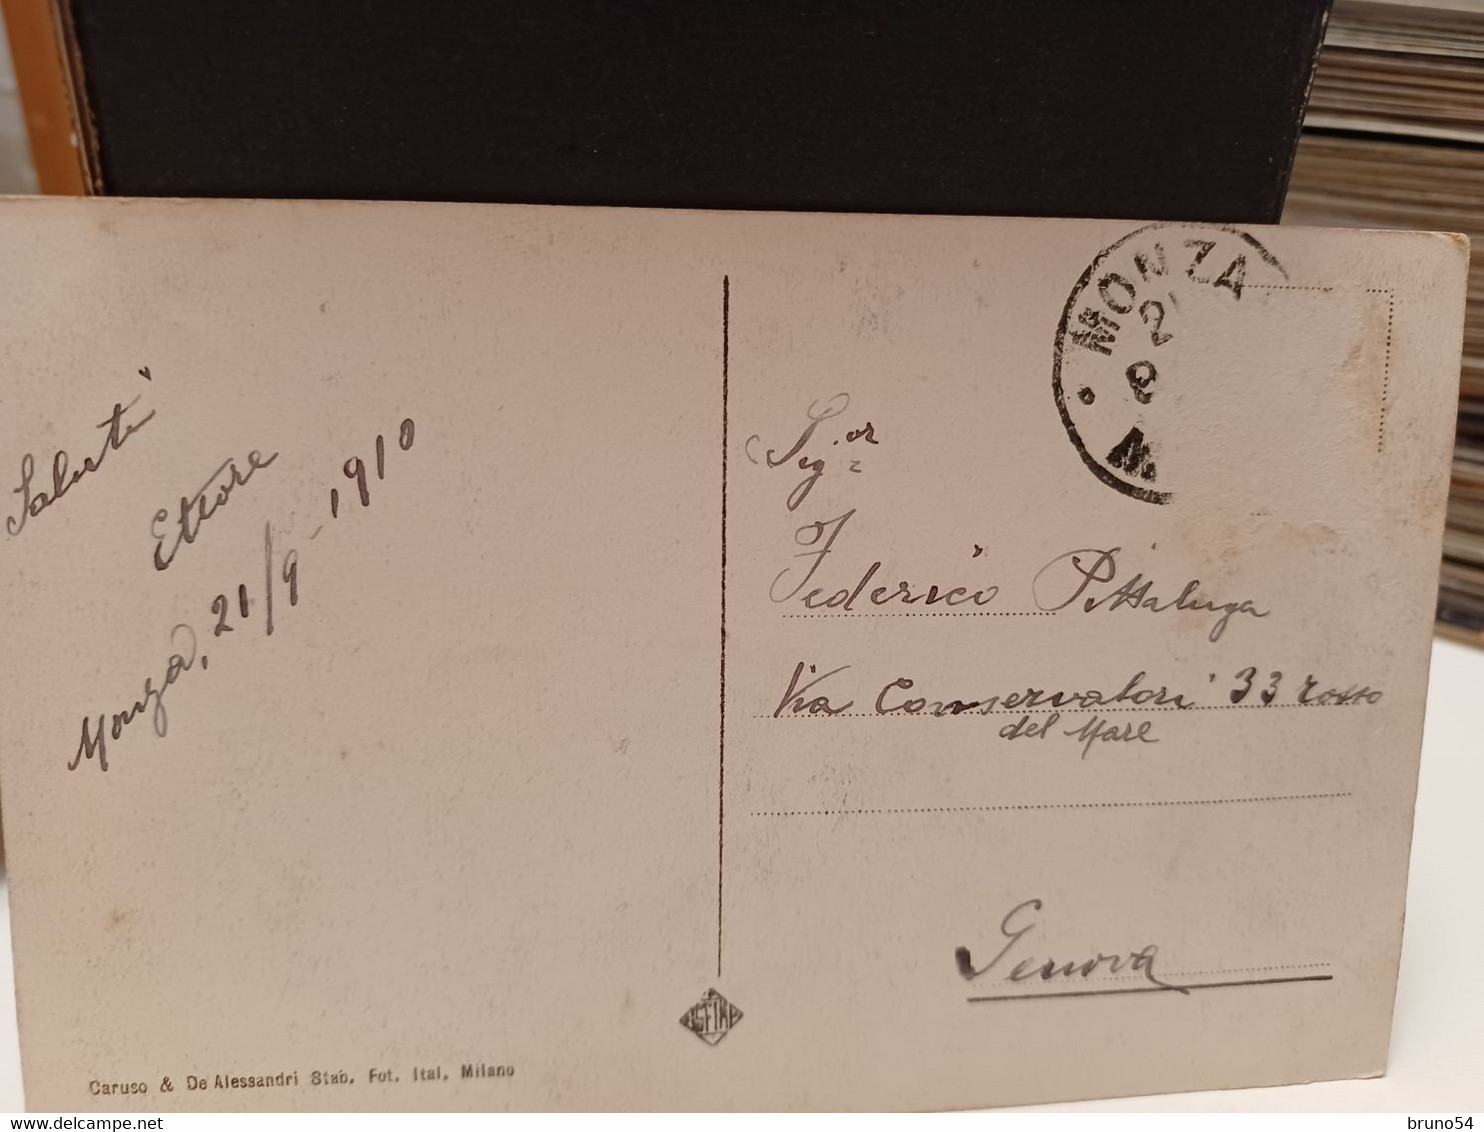 Saluti
Ettore
Monza, 21/9-1910
Caruso & De Alessandri Stab. Fot. Ital. Milano
MONZA
2
Sig.or
Federico Pittaluga
Via Conservatori 33 rosso
del Mare
Genova
bruno54